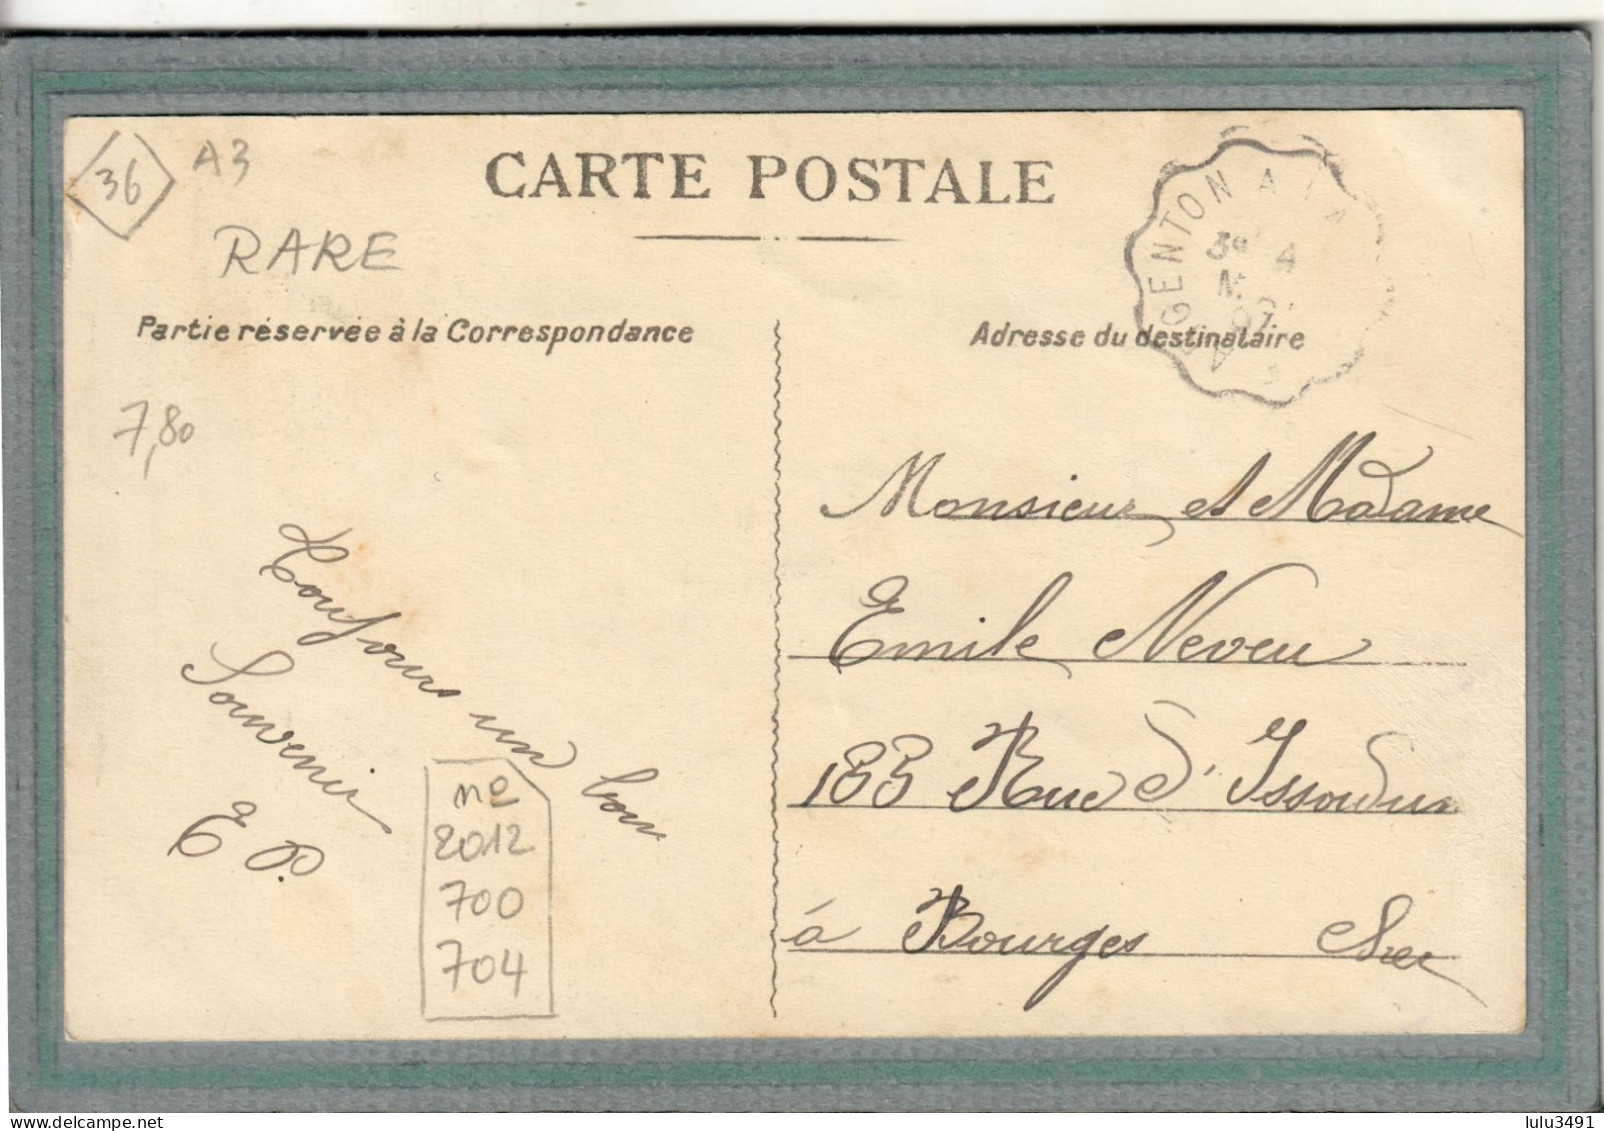 36
A3
RARE
CARTE POSTALE
ARGENTON A
4
07
Partie réservée à la Correspondance
Adresse du destinataire
7,80
Monsieur et Madame
Emile Neveu
183 Rue d'Issoudun
à Bourges Cher
Toujours un bon
Souvenir
E P.
no
2012
700
704
lulu3491